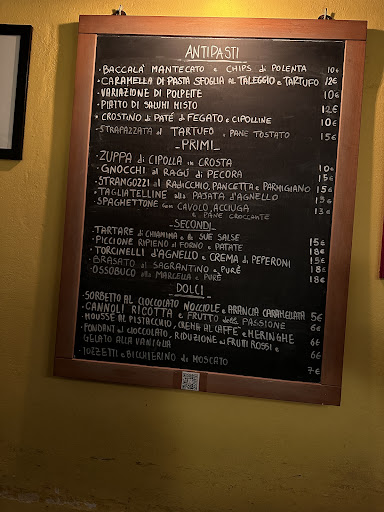 ANTIPASTI
• BACCALA' MANTECATO e CHIPS di POLENTA 10€
• CARAMELLA DI PASTA SFOGLIA AL TALEGGIO e TARTUFO 12€
• VARIAZIONE DI POLPETTE 10€
• PIATTO DI SALUMI MISTO 12€
• CROSTINO di PATÉ di FEGATO e CIPOLLINE 10€
• STRAPAZZATA al TARTUFO e PANE TOSTATO 15€
PRIMI
• ZUPPA di CIPOLLA IN CROSTA 10€
• GNOCCHI al RAGÚ di PECORA 15€
• STRANGOZZI al RADICCHIO, PANCETTA e PARMIGIANO 15€
• TAGLIATELLINE alla PAJATA D'AGNELLO 15€
• SPAGHETTONE con CAVOLO, ACCIUGA 13€
e PANE CROCCANTE
SECONDI
• TARTARE di CHIANINA e le SUE SALSE 15€
• PICCIONE RIPIENO al FORNO e PATATE 18€
• TORCINELLI D'AGNELLO e CREMA di PEPERONI 15€
• BRASATO al SAGRANTINO e PURÈ 18€
• OSSOBUCO alla MARSALA e PURÈ 18€
DOLCI
• SORBETTO AL CIOCCOLATO NOCCIOLE e ARANCIA CARAMELLATA 5€
• CANNOLI RICOTTA e FRUTTO della PASSIONE 6€
• MOUSSE AL PISTACCHIO, CREMA AL CAFFÈ e MERINGHE 6€
• FONDANT al CIOCCOLATO, RIDUZIONE ai FRUTTI ROSSI e 6€
GELATO ALLA VANIGLIA
• TOZZETTI e BICCHIERINO di MOSCATO 7€